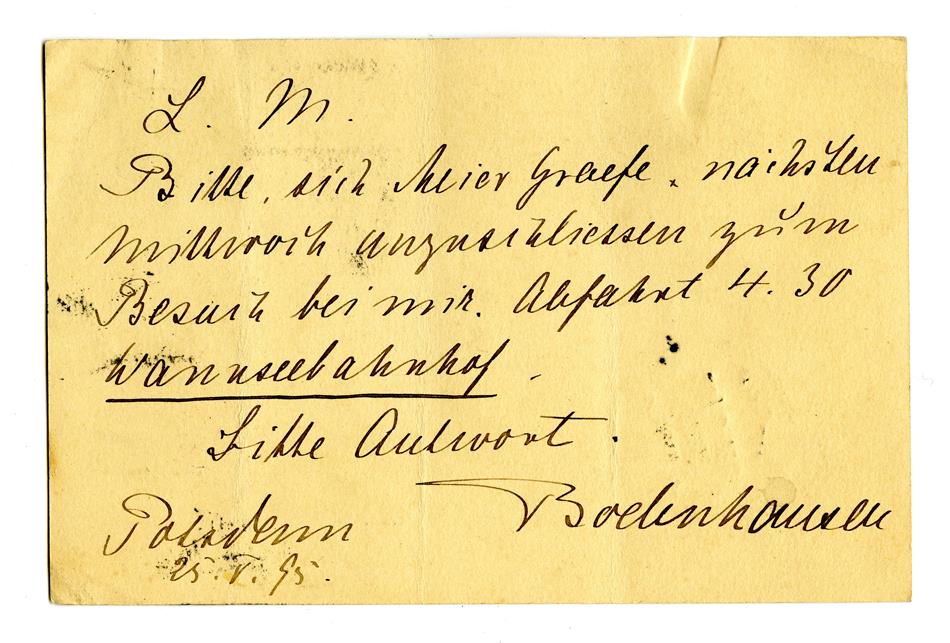 L. M.
Bitte, sich Meier Graefe, nächsten
Mittwoch anzuschliessen zum
Besuch bei mir. Abfahrt 4.30
Wannseebahnhof.
Bitte Antwort.
Bodenhausen
Potsdam
25. V. 95.